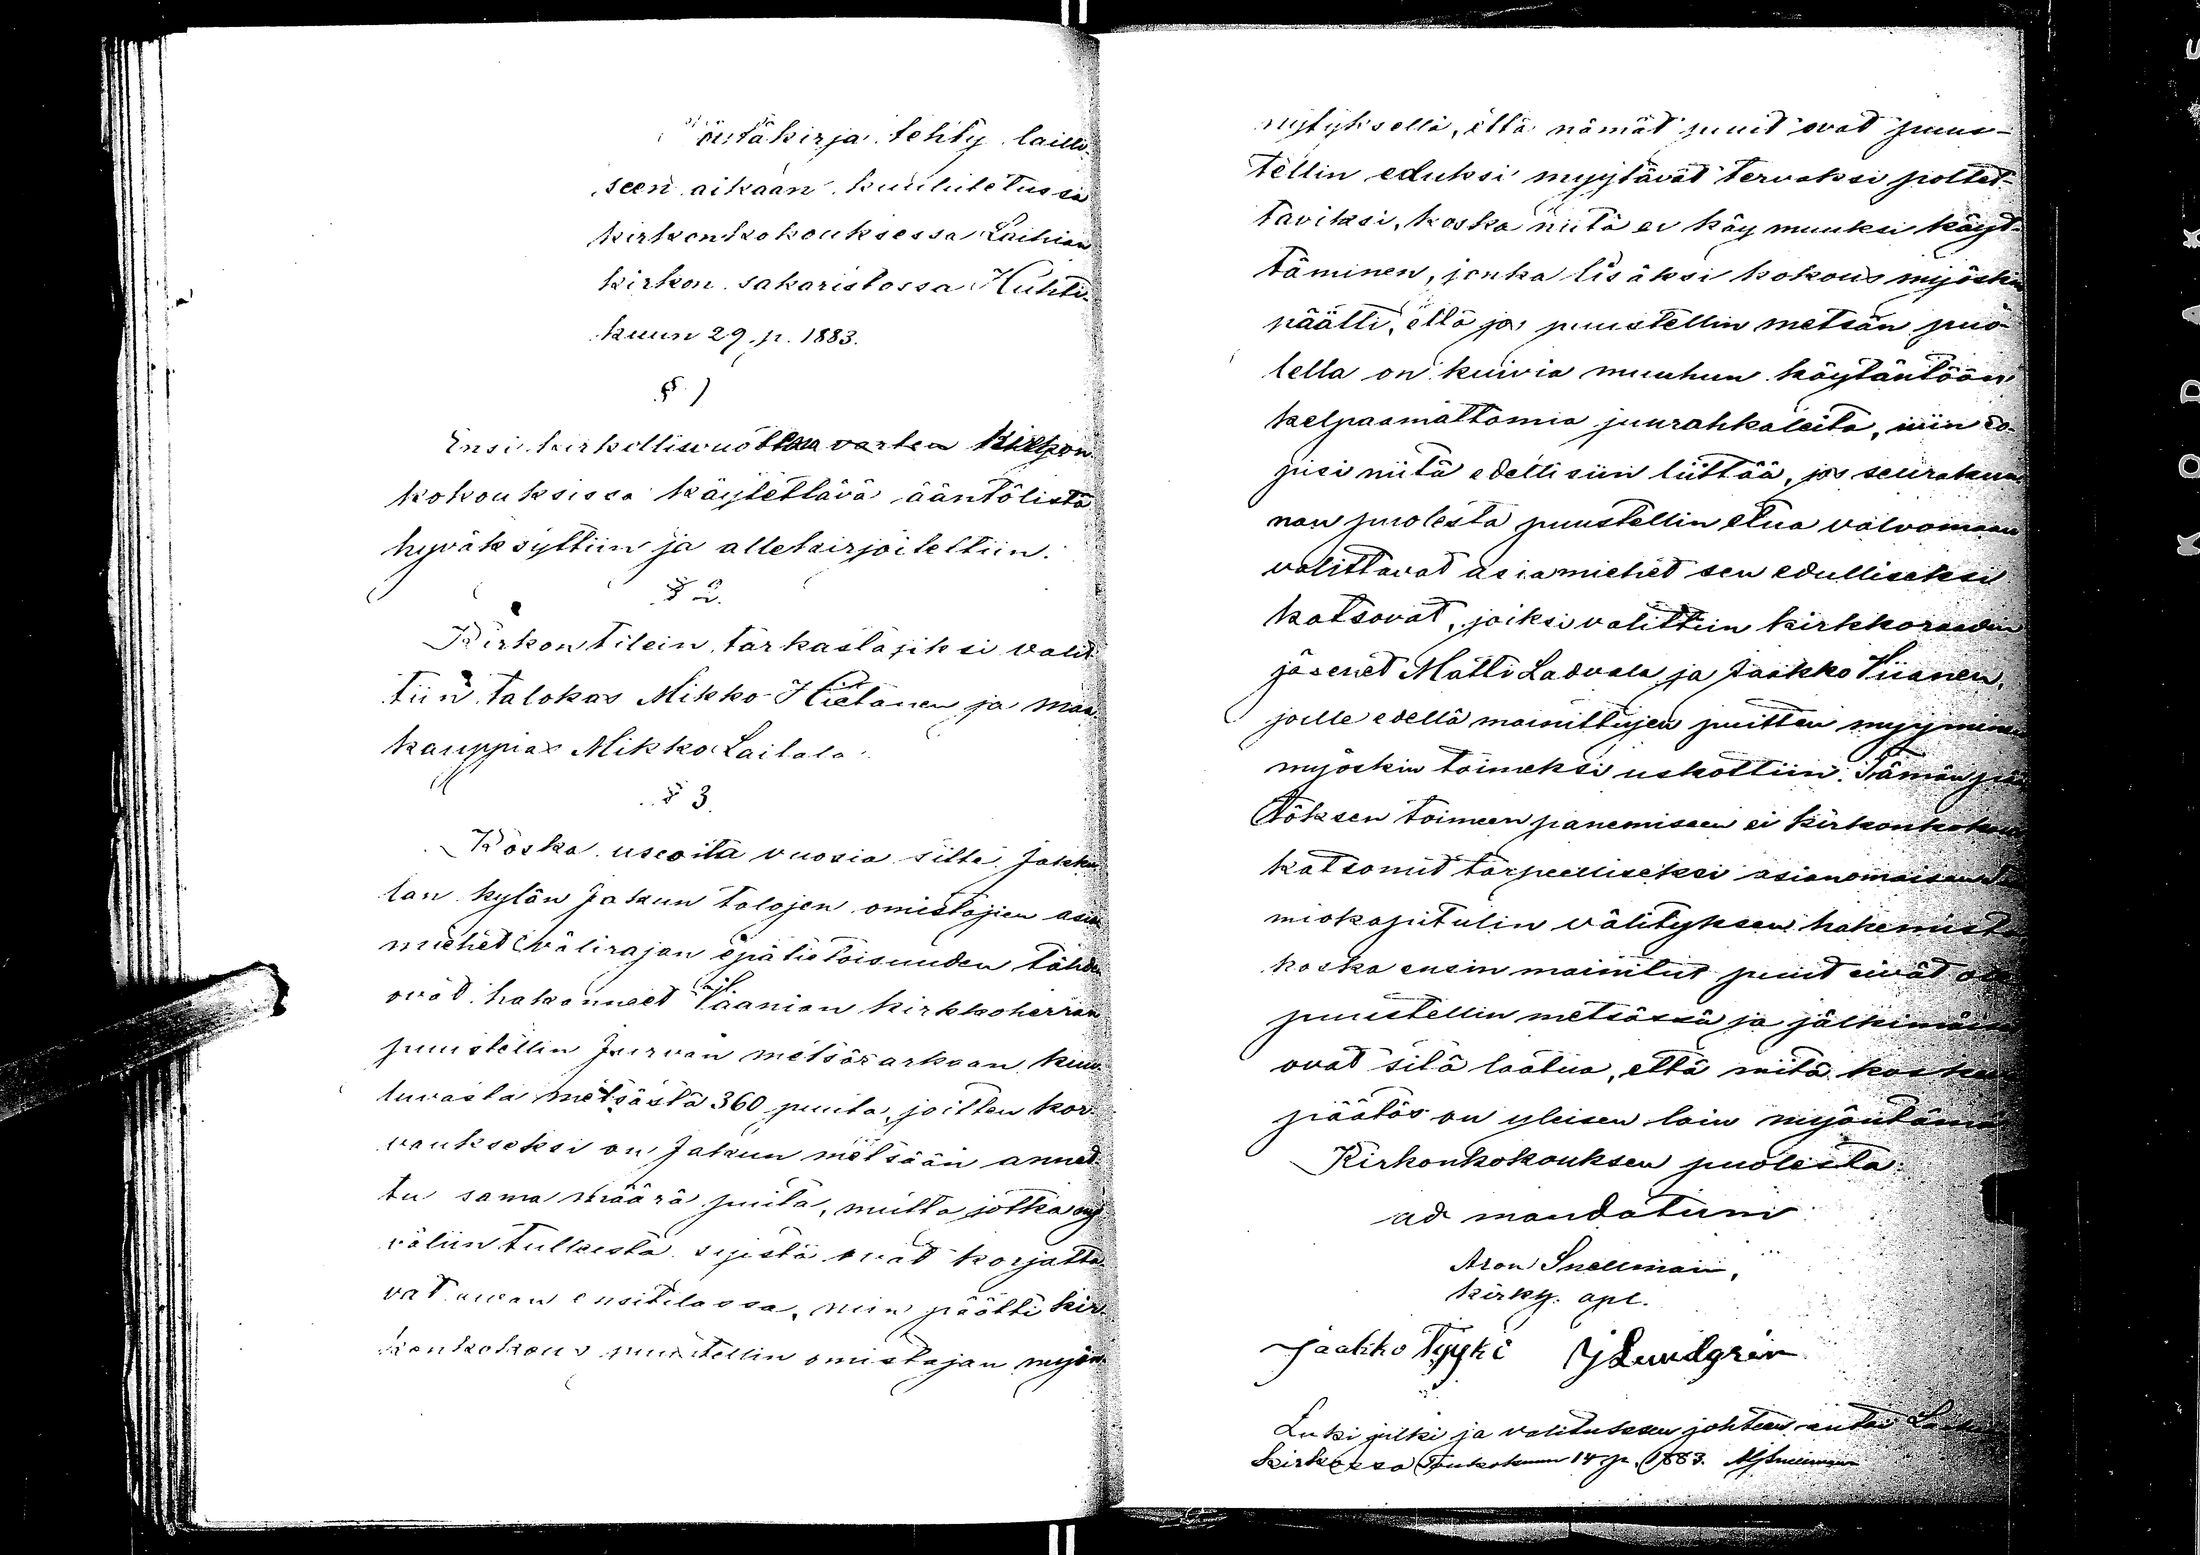 öytäkirja tehty lailli-
seen aikaan kuulutetussa
kirkonkokouksessa Laihian
kirkon sakaristossa Huhti-
kuun 29 p. 1883.
§ 1
Ensi kirkollisvuotta varten kirkon
kokouksissa käytettävä ääntölista
hyväksyttiin ja allekirjoitettiin.
§ 2.
Kirkon tilein tarkastajiksi valit-
tiin talokas Mikko Hietanen ja maa
kauppias Mikko Laitala.
§ 3.
Koska useoita vuosia sitte Jakku
lan kylän Jakun talojen omistajien asia
miehet välirajan epätietoisuuden tähden
ovat hakanneet Vaanian kirkkoherran
puustellin Jurvan metsäsarkaan kuu
luvasta metsästä 360 puuta, joitten kor-
vaukseksi on Jakun metsään annet-
tu sama määrä puita, mutta jotka nyt
väliin tulleesta syystä ovat korjatta-
vat ensitilassa, niin päätti kir-
konkokous puustellin omistajan myön-
nytyksellä, että nämät puut ovat puus-
tellin eduksi myytävät tervaksi poltet-
taviksi, koska niitä ei käy muuksi käyt-
täminen, jonka lisäksi kokous myöskin
päätti, että jos puustellin metsän puo-
lella on kuivia muuhun käytäntöön
kelpaamattomia juurahkoleita, niin so-
pisi niitä edellisiin liittää, jos seurakun
nan puolesta puustellin etua valvomaan
valittavat asiamiehet sen edulliseksi
katsovat, joiksi valittiin kirkkoraadin
jäsenet Matti Ladvala ja Jaakko Viianen,
joille edellä mainittujen puitten myyminen
myöskin toimeksi uskottiin. Tämän pää
töksen toimeen panemiseen ei kirkonkokous
katsonut tarpeelliseksi asianomaisen Tuo
miokapitulin välityksen hakemista
koska ensin mainitut puut eivät ole
puustellin metsässä ja jälkimäiset
ovat sitä laatua, että niitä koskeva
päätös on yleisen lain myöntämä
Kirkonkokouksen puolesta:
ad mandatum
Aron Snellman,
kirkh. apl.
Jaakko Tyyki J Lundgren
Luki julki ja valituksen johteen antoi Laihian
kirkossa Toukokuun 14 p. 1883. Snellman
KODAK S